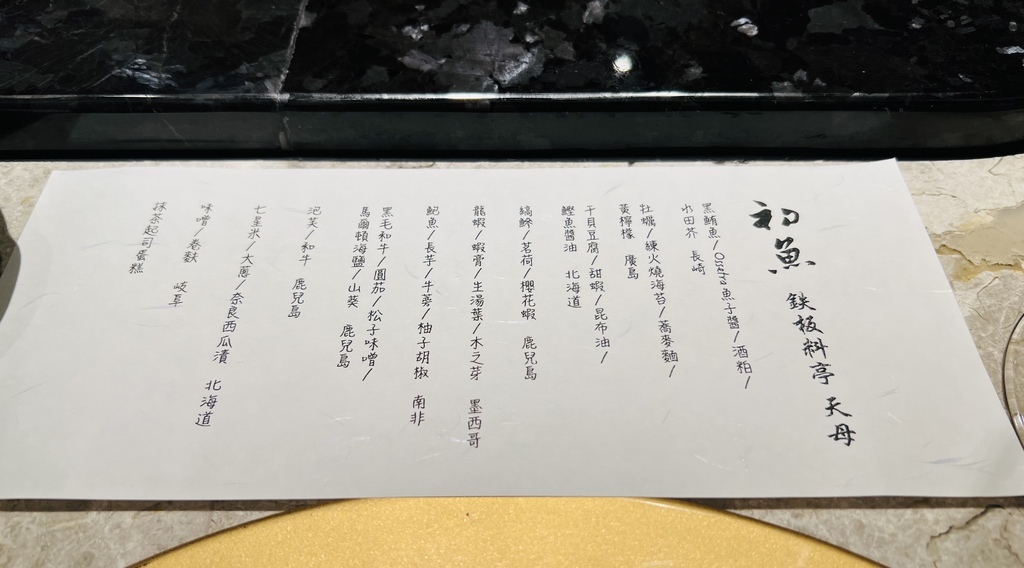 初魚 鉄板料亭 天母
黑鮪魚/Osetra魚子醬/酒粕/
山田芥 長崎
牡蠣/練火燒海苔/蕎麥麵/
黃檸檬 廣島
干貝豆腐/甜蝦/昆布油/
鰹魚醬油 北海道
縞鰺/茗荷/櫻花蝦 鹿兒島
龍蝦/蝦膏/生湯葉/木之芽 墨西哥
鮑魚/長芋/牛蒡/柚子胡椒 南非
黑毛和牛/圓茄/松子味噌/
馬爾頓海鹽/山葵 鹿兒島
泡芙/和牛 鹿兒島
七星米/大蔥/奈良西瓜漬 北海道
味噌/卷麩 岐阜
抹茶起司蛋糕